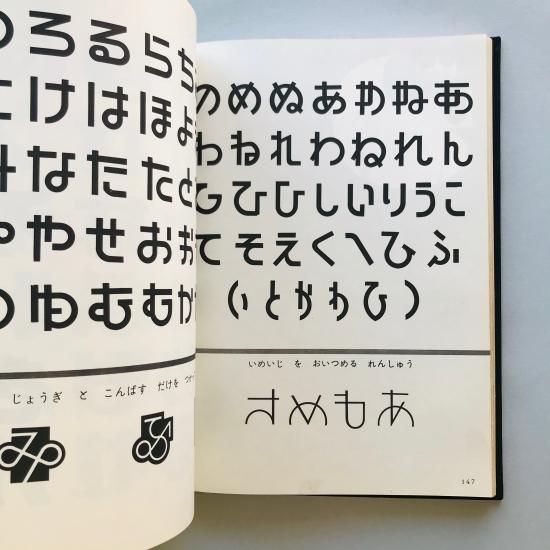 ろるらち
けはほよ
なたたと
やせおお
ゆむむか
じょうぎ と こんぱす だけを
のめぬあやぬあ
わねれわねれん
ひひしいりうこ
てそえくへひふ
(いとかわひ)
いめいじ を おいつめる れんしゅう
さめもあ
147